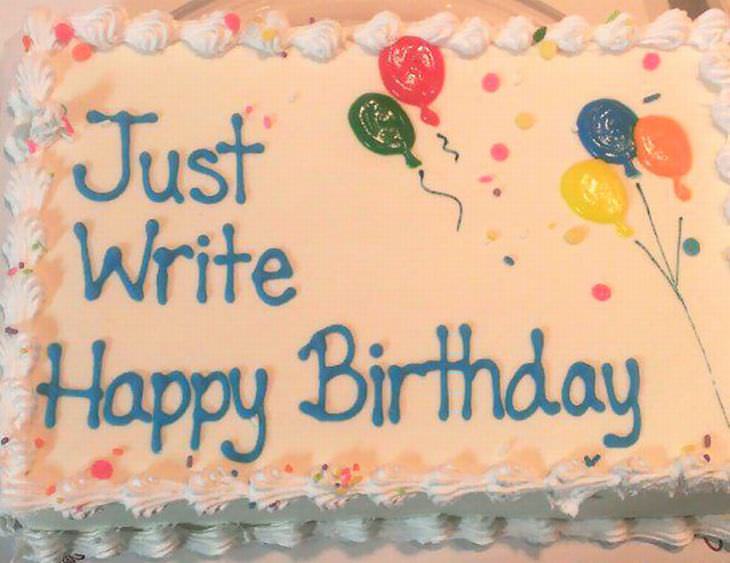 Just
Write
Happy Birthday